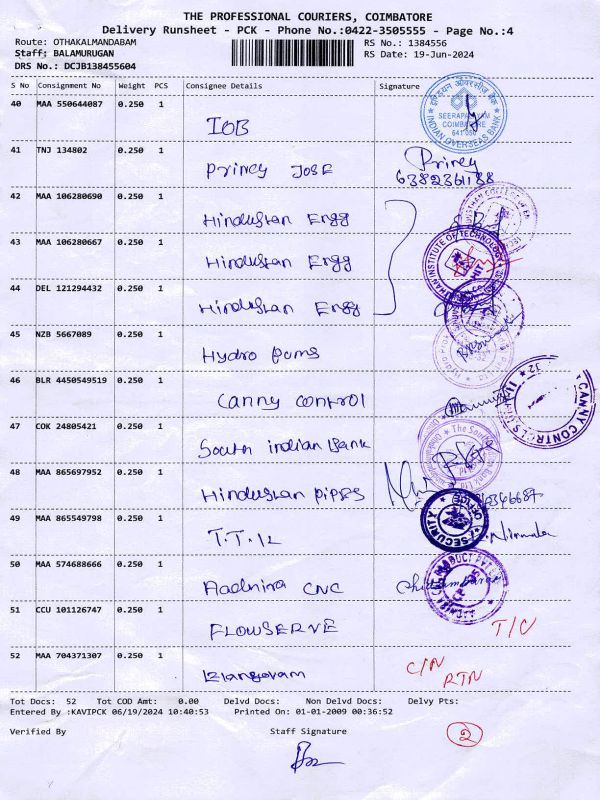 THE PROFESSIONAL COURIERS, COIMBATORE
Delivery Runsheet - PCK - Phone No.:0422-3505555 - Page No.:4
Route: OTHAKALMANDABAM RS No.: 1384556
Staff: BALAMURUGAN RS Date: 19-Jun-2024
DRS No.: DCJB138455604
S No Consignment No Weight PCS Consignee Details Signature
40 MAA 550644087 0.250 1 IOB
SEERAPALAYAM
COIMBATORE
641 050
INDIAN OVERSEAS BANK
41 TNJ 134802 0.250 1 Princy JOSE Princy
6382361188
42 MAA 106280690 0.250 1 Hindustan Engg
43 MAA 106280667 0.250 1 Hindustan Engg
INSTITUTE OF TECHNOLOGY
HIT
44 DEL 121294432 0.250 1 Hindustan Engg
45 NZB 5667089 0.250 1 Hydro Poms
46 BLR 4450549519 0.250 1 Canny control
CANNY CONTROLS
47 COK 24805421 0.250 1 South indian Bank
48 MAA 865697952 0.250 1 Hindustan pipes
49 MAA 865549798 0.250 1 Nirmala
SECURITY
50 MAA 574688666 0.250 1 CNC
51 CCU 101126747 0.250 1 FLOWSERVE T/C
52 MAA 704371307 0.250 1 C/N
RTN
Tot Docs: 52 Tot COD Amt: 0.00 Delvd Docs: Non Delvd Docs: Delvy Pts:
Entered By :KAVIPCK 06/19/2024 10:40:53 Printed On: 01-01-2009 00:36:52
Verified By Staff Signature
2